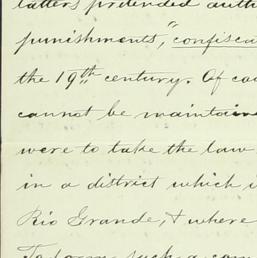 latters pretended auth
punishments," confisca
the 19th century. Of cou
cannot be maintain
were to take the law
in a district which i
Rio Grande, & where
To form such a com